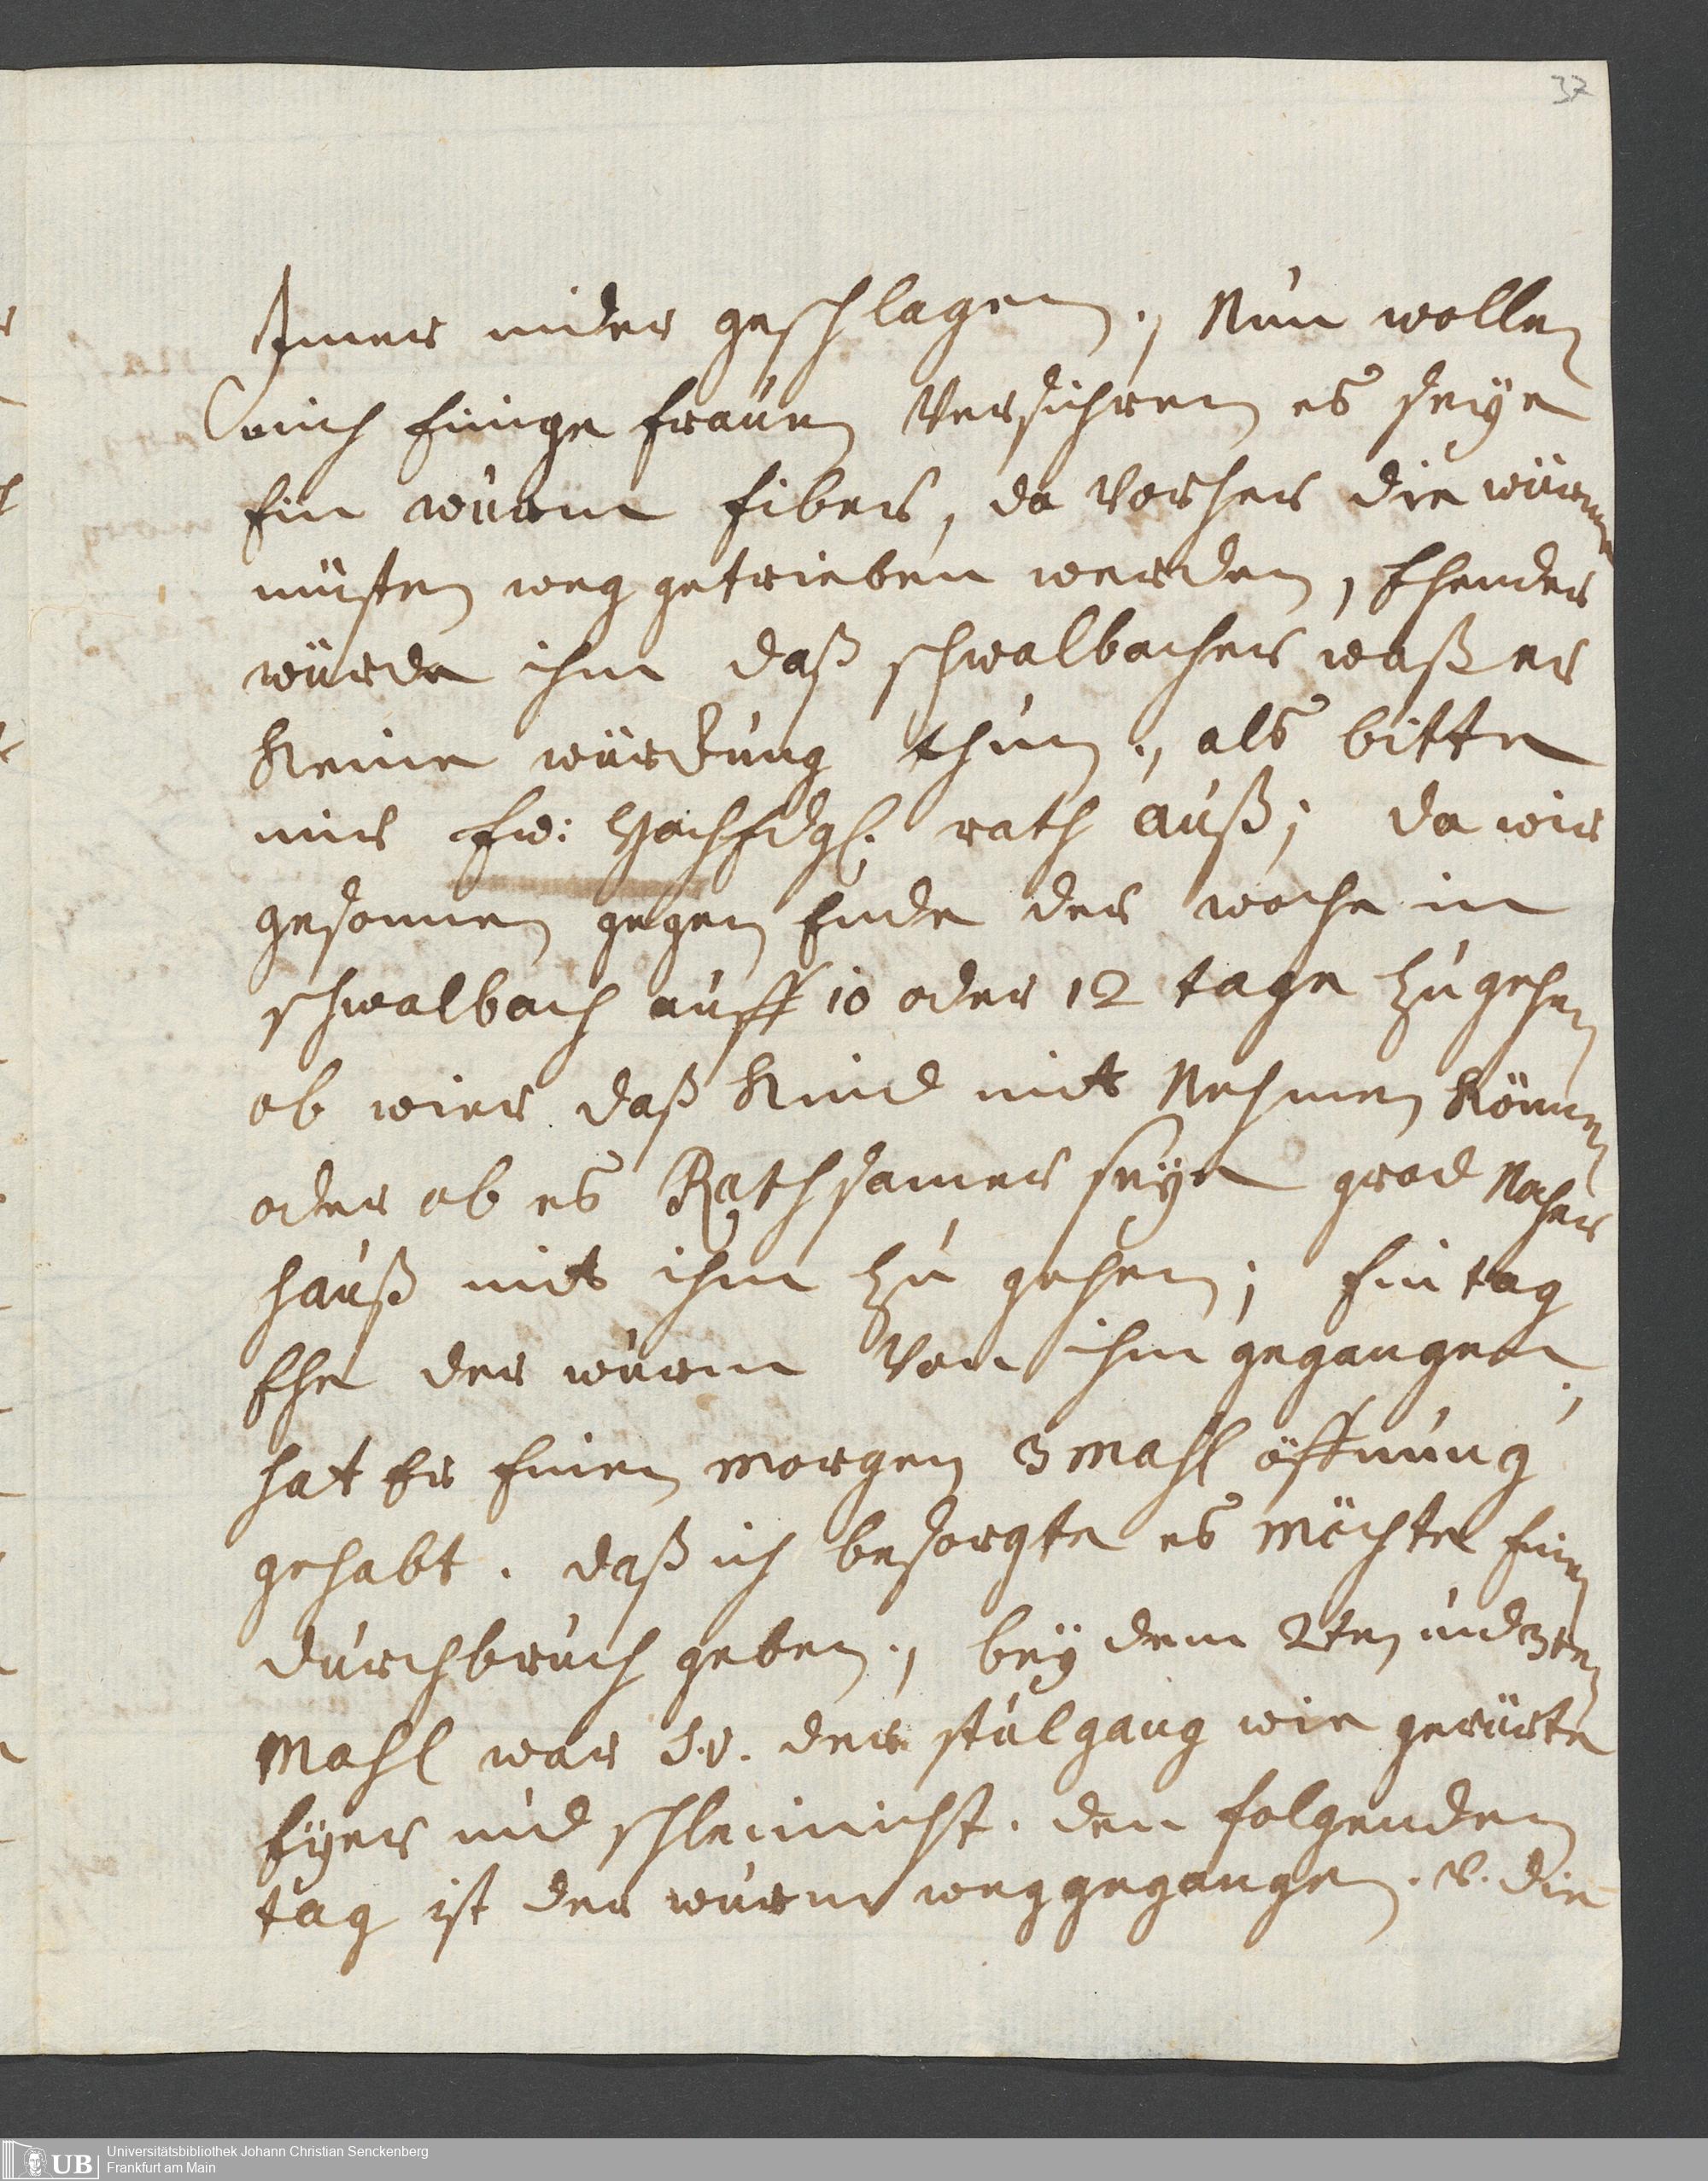 37
Imer nider geschlagen., Nun wollen
mich Einige frauen Versichren es seye
Ein wurm fiber, da Vorher die würme
müsten weg getrieben werden, Ehender
würde ihm daß schwalbacher waßer
Keine würckung thun., als bitte
mir Ew: HochEdgl. rath auß; da wir
gesonnen gegen Ende der woche in
schwalbach auff 10 oder 12 tage zu gehen
ob wier daß Kind mit Nehmen Können
oder ob es Rathsamer seye grad Nacher
hauß mit ihm zu gehen; Ein tag
Ehe der wurm Von ihm gegangen,
hat Er Einen morgen 3 mahl öffnung
gehabt. daß ich besorgte es möchte Einen
durchbruch geben., bey dem 2ten und 3ten
Mahl war S.v. der stulgang wie gerürte
Eyer und schleimicht. den folgenden
tag ist der wurm weggegangen. v. die
UB
Universitätsbibliothek Johann Christian Senckenberg
Frankfurt am Main